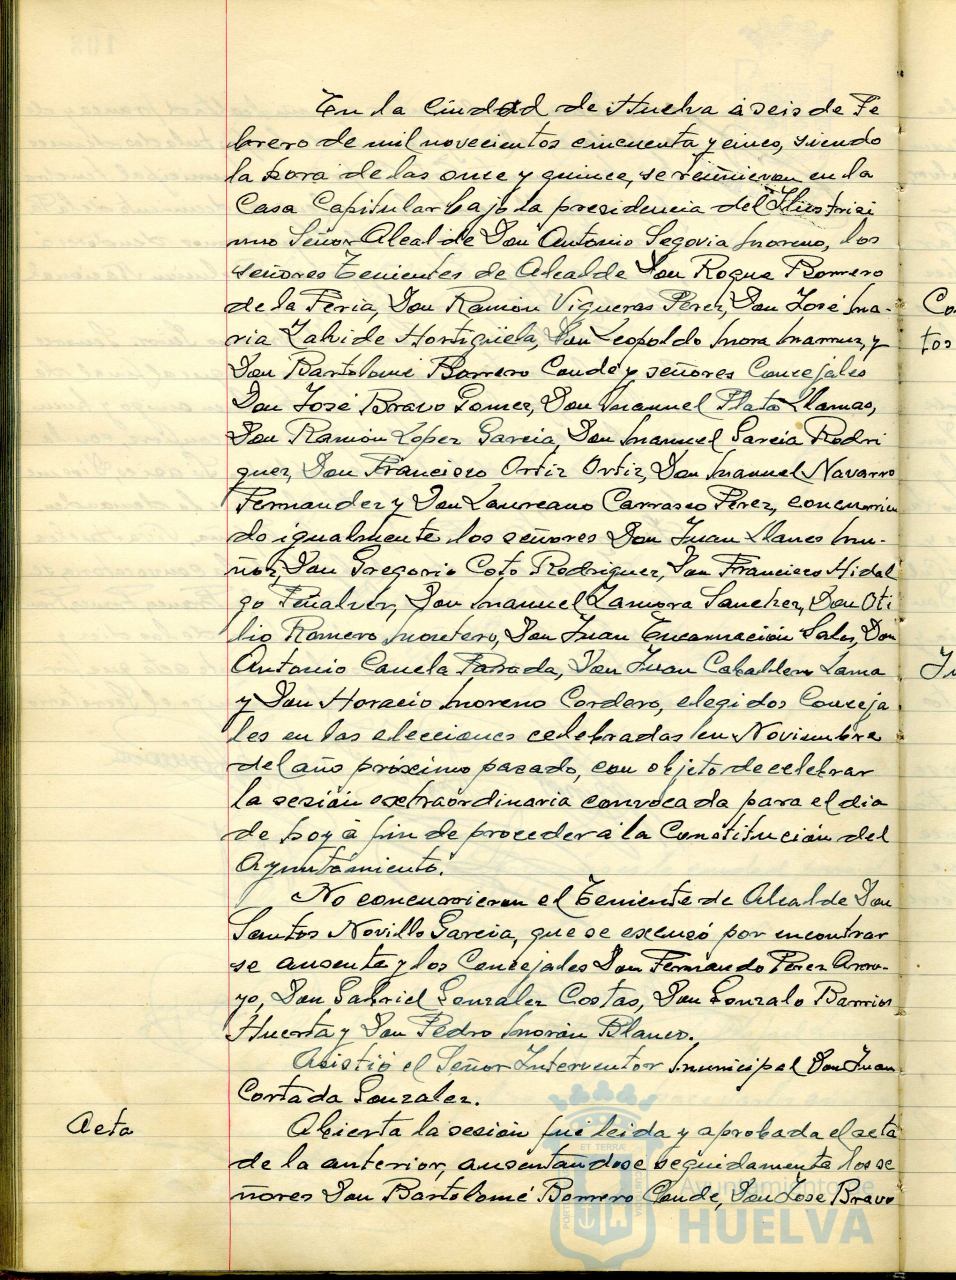 En la Ciudad de Huelva à seis de Fe
brero de mil novecientos cincuenta y cinco, siendo
la hora de las once y quince, se reunieron en la
Casa Capitular bajo la presidencia del Ilustrisi
mo Señor Alcalde Don Antonio Segovia Moreno, los
señores Tenientes de Alcalde Don Roque Borrero
de la Feria, Don Ramón Vigueras Perez, Don José Ma-
ria Zalvide Hortigüela, Don Leopoldo Mora Marruz, y
Don Bartolomé Borrero Conde y señores Concejales
Don José Bravo Gomez, Don Manuel Plata Llamas,
Don Ramón Lopez Garcia, Don Manuel Garcia Rodri
guez, Don Francisco Ortiz Ortiz, Don Manuel Navarro
Fernandez y Don Laureano Carrasco Perez, concurrien
do igualmente los señores Don Juan Llanes Mu-
ñoz, Don Gregorio Coto Rodriguez, Don Francisco Hidal
go Peñalver, Don Manuel Zamora Sanchez, Don Oti
lio Romero Montero, Don Juan Encarnación Sales, Don
Antonio Canela Parada, Don Juan Caballero Lama
y Don Horacio Moreno Cordero, elegidos Conceja
les en las elecciones celebradas en Noviembre
del año próximo pasado, con objeto de celebrar
la sesión extraordinaria convocada para el dia
de hoy à fin de proceder à la Constitución del
Ayuntamiento.
No concurrieron el Teniente de Alcalde Don
Santos Novillo Garcia, que se excusó por encontrar
se ausente y los Concejales Don Fernando Perez Arro-
yo, Don Gabriel Gonzalez Costas, Don Gonzalo Barrios
Huerta y Don Pedro Morón Blanco.
Asistió el Señor Interventor Municipal Don Juan
Cortada Gonzalez.
Acta
Abierta la sesión fué leida y aprobada el acta
de la anterior, ausentandose seguidamente los se
ñores Don Bartolomé Borrero Conde, Don Jose Bravo
Ayuntamiento de
HUELVA